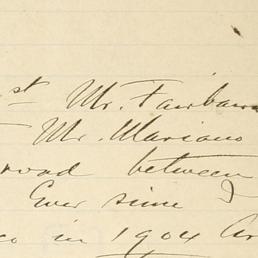 st Mr. Fairban
Mr. Mariano
road between
Ever since
co in 1904 Ar